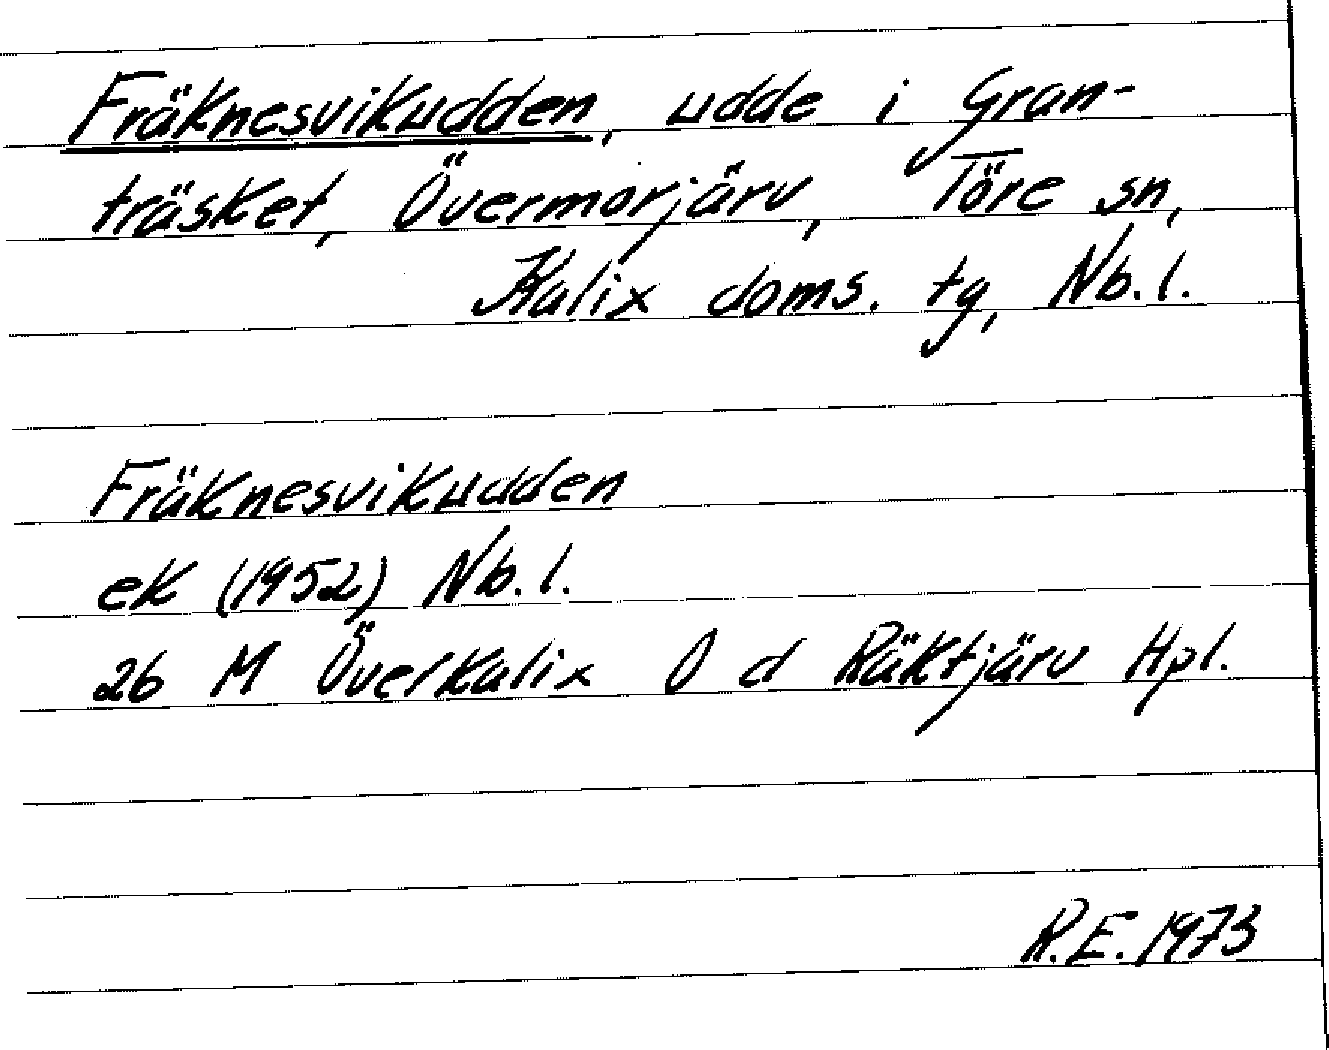 Fräknesvikudden, udde i Gran-
träsket, Övermorjärv, Töre sn,
Kalix doms. tg, Nb. l.
Fräknesvikudden
ek (1952) Nb. l.
26 M Överkalix O d Räktjärv Hpl.
R.E. 1973